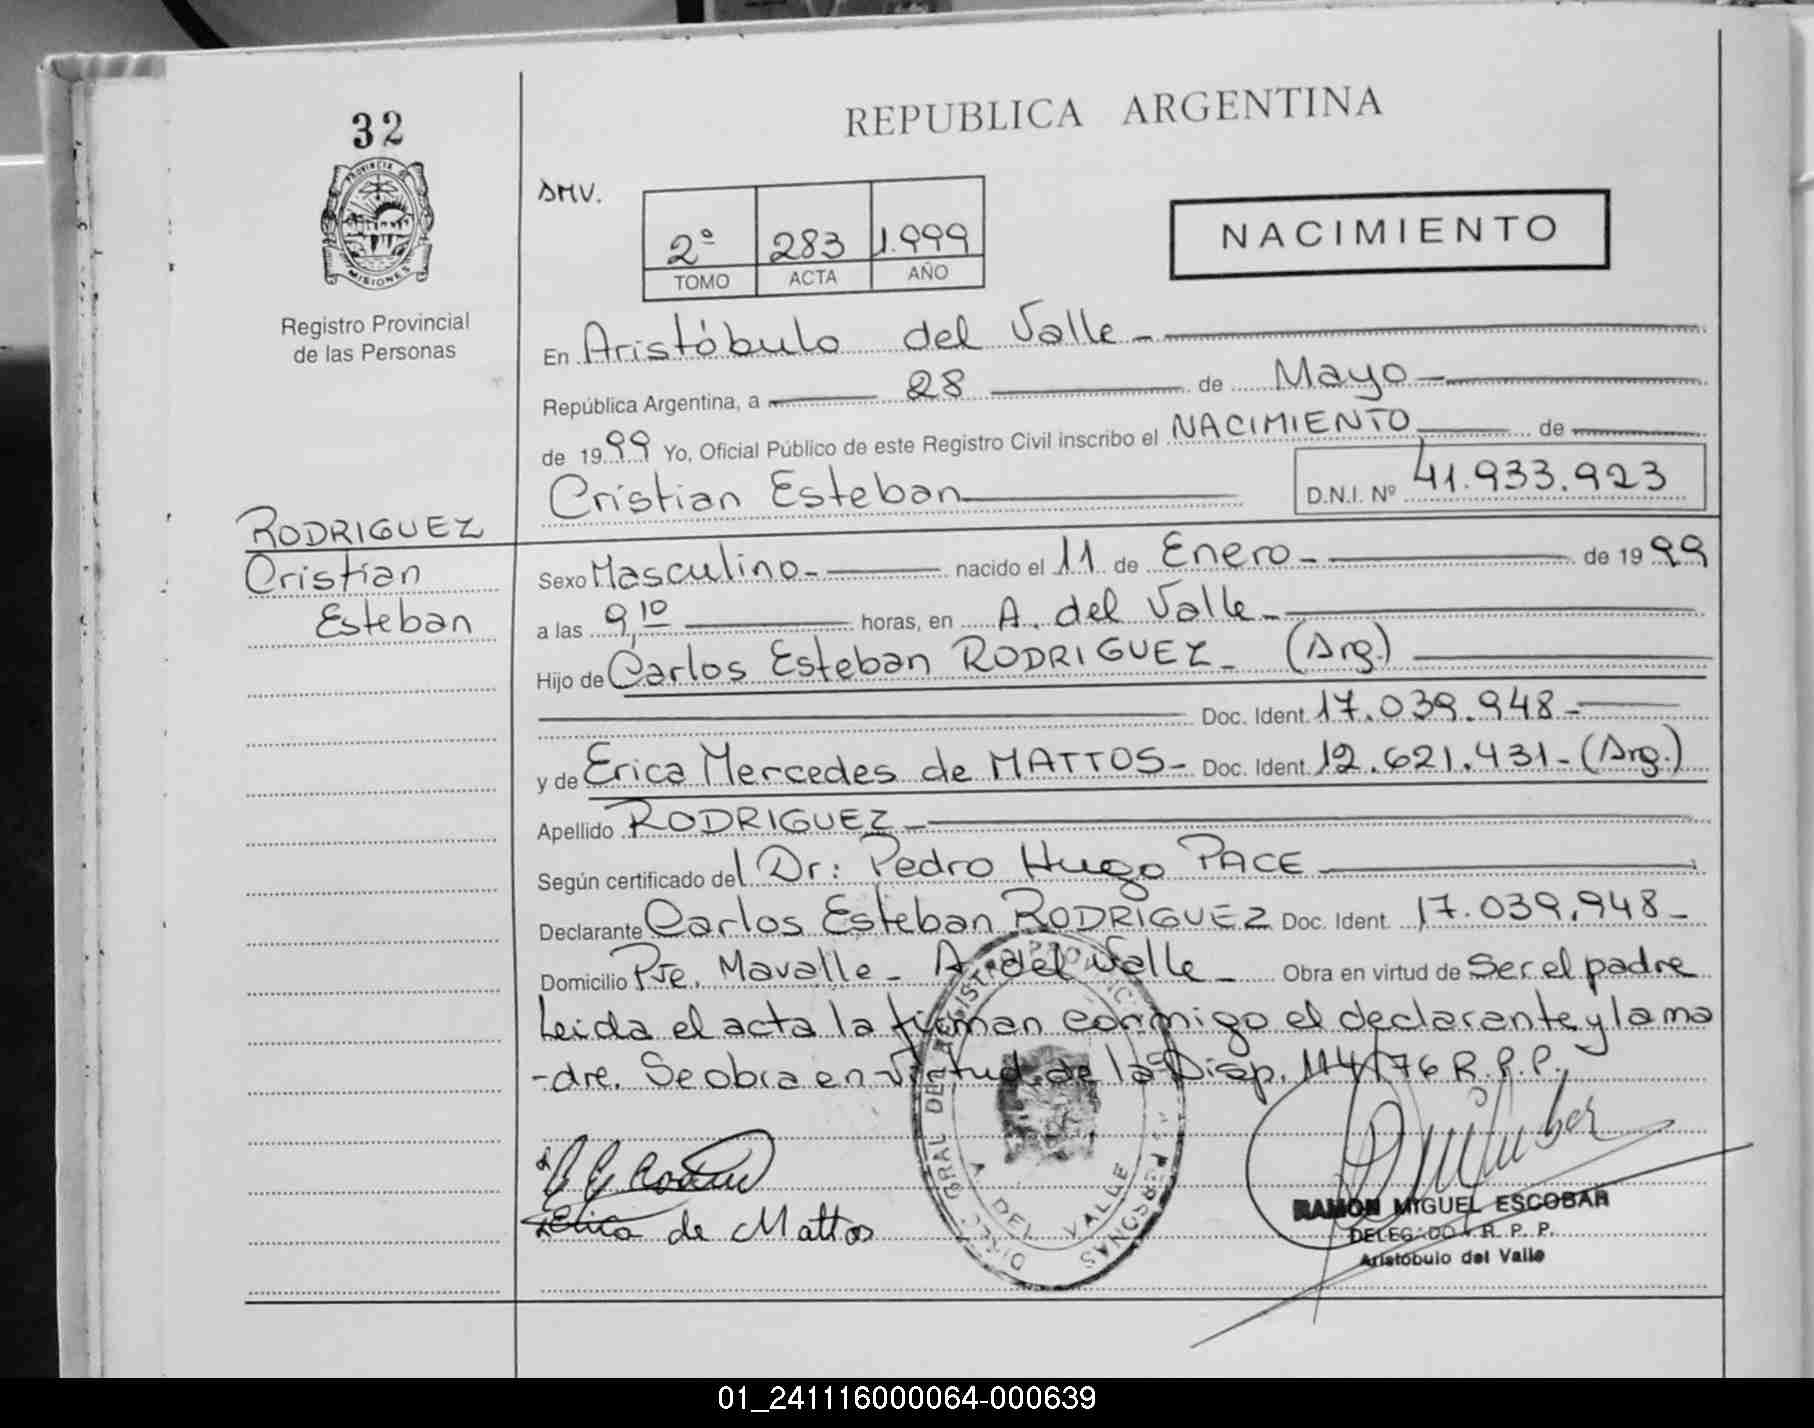 32
PROVINCIA DE
MISIONES
Registro Provincial
de las Personas
RODRIGUEZ
Cristian
Esteban
REPUBLICA ARGENTINA
2º 283 1.999
TOMO ACTA AÑO
NACIMIENTO
En Aristóbulo del Valle -
República Argentina, a 28 de Mayo -
de 1999 Yo, Oficial Público de este Registro Civil inscribo el NACIMIENTO de
Cristian Esteban D.N.I. Nº 41.933.923
Sexo Masculino - nacido el 11 de Enero - de 1999
a las 9,10 horas, en A. del Valle -
Hijo de Carlos Esteban RODRIGUEZ - (Arg.)
Doc. Ident. 17.039.948 -
y de Erica Mercedes de MATTOS - Doc. Ident. 12.621.431 - (Arg.)
Apellido RODRIGUEZ -
Según certificado del Dr: Pedro Hugo PACE
Declarante Carlos Esteban RODRIGUEZ Doc. Ident. 17.039.948 -
Domicilio Pje. Mavalle - A. del Valle - Obra en virtud de Ser el padre
Leida el acta la firman conmigo el declarante y la ma
-dre. Se obra en virtud de la Disp. 114/76 R.P.P.
Erica de Mattos
A. DEL VALLE
RAMON MIGUEL ESCOBAR
DELEGADO R. P. P.
Aristóbulo del Valle
01_241116000064-000639